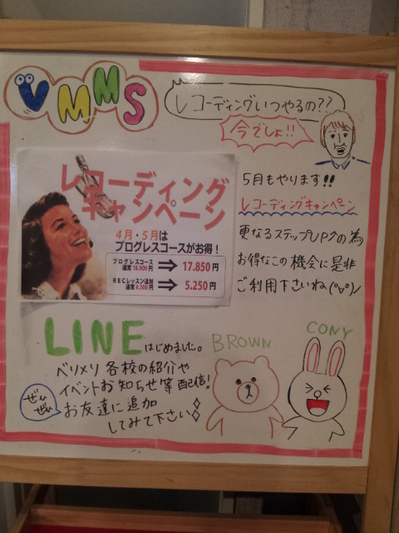 VMMS
レコーディングいつやるの??
今でしょ!!
レコーディング
キャンペーン
4月・5月は
プログレスコースがお得!
プログレスコース
通常18,900円 ⇒ 17.850円
RECレッスン追加
通常6,300円 ⇒ 5.250円
5月もやります!!
レコーディングキャンペーン
更なるステップUPの為
お得なこの機会に是非
ご利用下さいね(°∀°)ノ
LINEはじめました。
ベリメリ各校の紹介や
イベントお知らせ等配信!
ぜひぜひ
お友達に追加
してみて下さい
BROWN
CONY